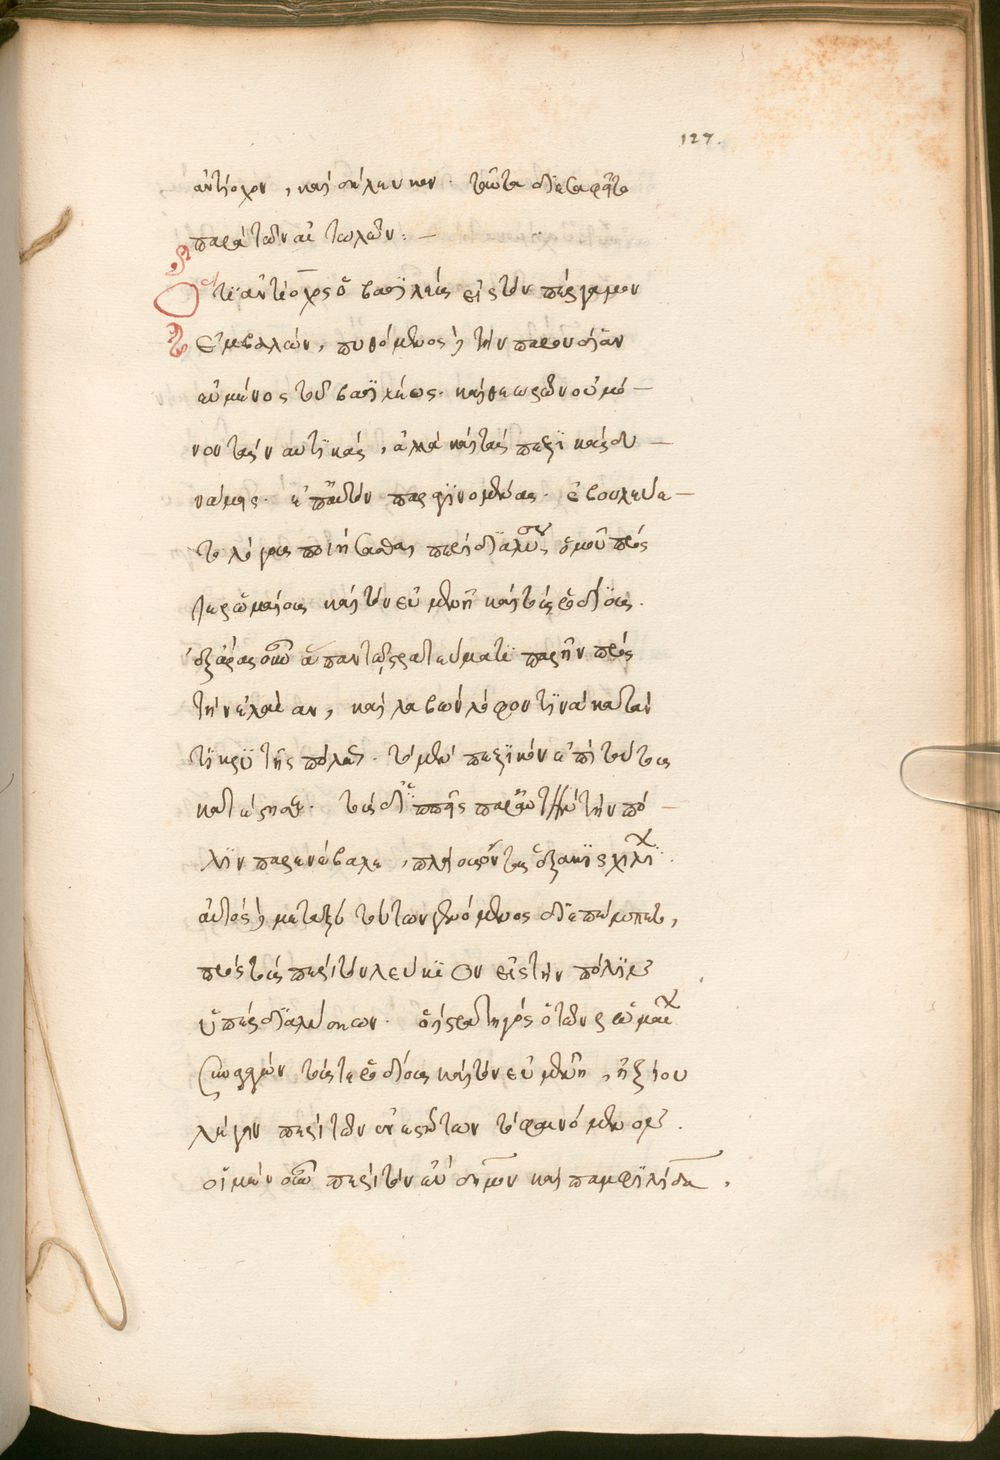 127.
ἀντίοχον, καὶ σέλευκον. ταῦτα διεσαφεῖτο
παρὰ τῶν αἰτωλῶν: —
Ὅτι ἀντίοχος ὁ βασιλεὺς εἰς τὸν πέργαμον
ἐμβαλὼν, πυθόμενος δὲ τὴν παρουσίαν
εὐμένος τοῦ βασιλέως. καὶ θεωρῶν οὐ μό—
νον τὰς ναυτικὰς, ἀλλὰ καὶ τὰς πεζικὰς δυ—
νάμεις. ἐπ' αὐτὸν παραγινομένας. ἐβουλεύε—
το λόγους ποιήσασθαι περὶ διαλύσεως, ὁμοῦ πρός
τε ῥωμαίους καὶ τὸν εὐμένη καὶ τοὺς ῥοδίους.
ἐξάρας οὖν ἅπαντι τῷ στρατεύματι παρῆν πρὸς
τὴν ἐλαίαν, καὶ λαβὼν λόφον τινὰ καταν
τικρὺ τῆς πόλεως. τὸ μὲν πεζικὸν ἐπὶ τούτου
κατέστησε. τοὺς δ' ἱππεῖς παρ' αὐτὴν τὴν πό—
λιν παρενέβαλε, πλείους ὄντας ἑξακισχιλίων.
αὐτὸς δὲ μεταξὺ τούτων γενόμενος διεπέμπετο,
πρὸς τοὺς περὶ τὸν λεύκιον εἰς τὴν πόλιν
ὑπὲρ διαλύσεων. ὁ δὲ στρατηγὸς ὁ τῶν ῥωμαίων
συναγαγὼν τούς τε ῥοδίους καὶ τὸν εὐμένη, ἠξίου
λέγειν περὶ τῶν ἐνεστώτων τὸ φαινόμενον.
οἱ μὲν οὖν περὶ τὸν εὔδημον καὶ παμφιλίδαν.